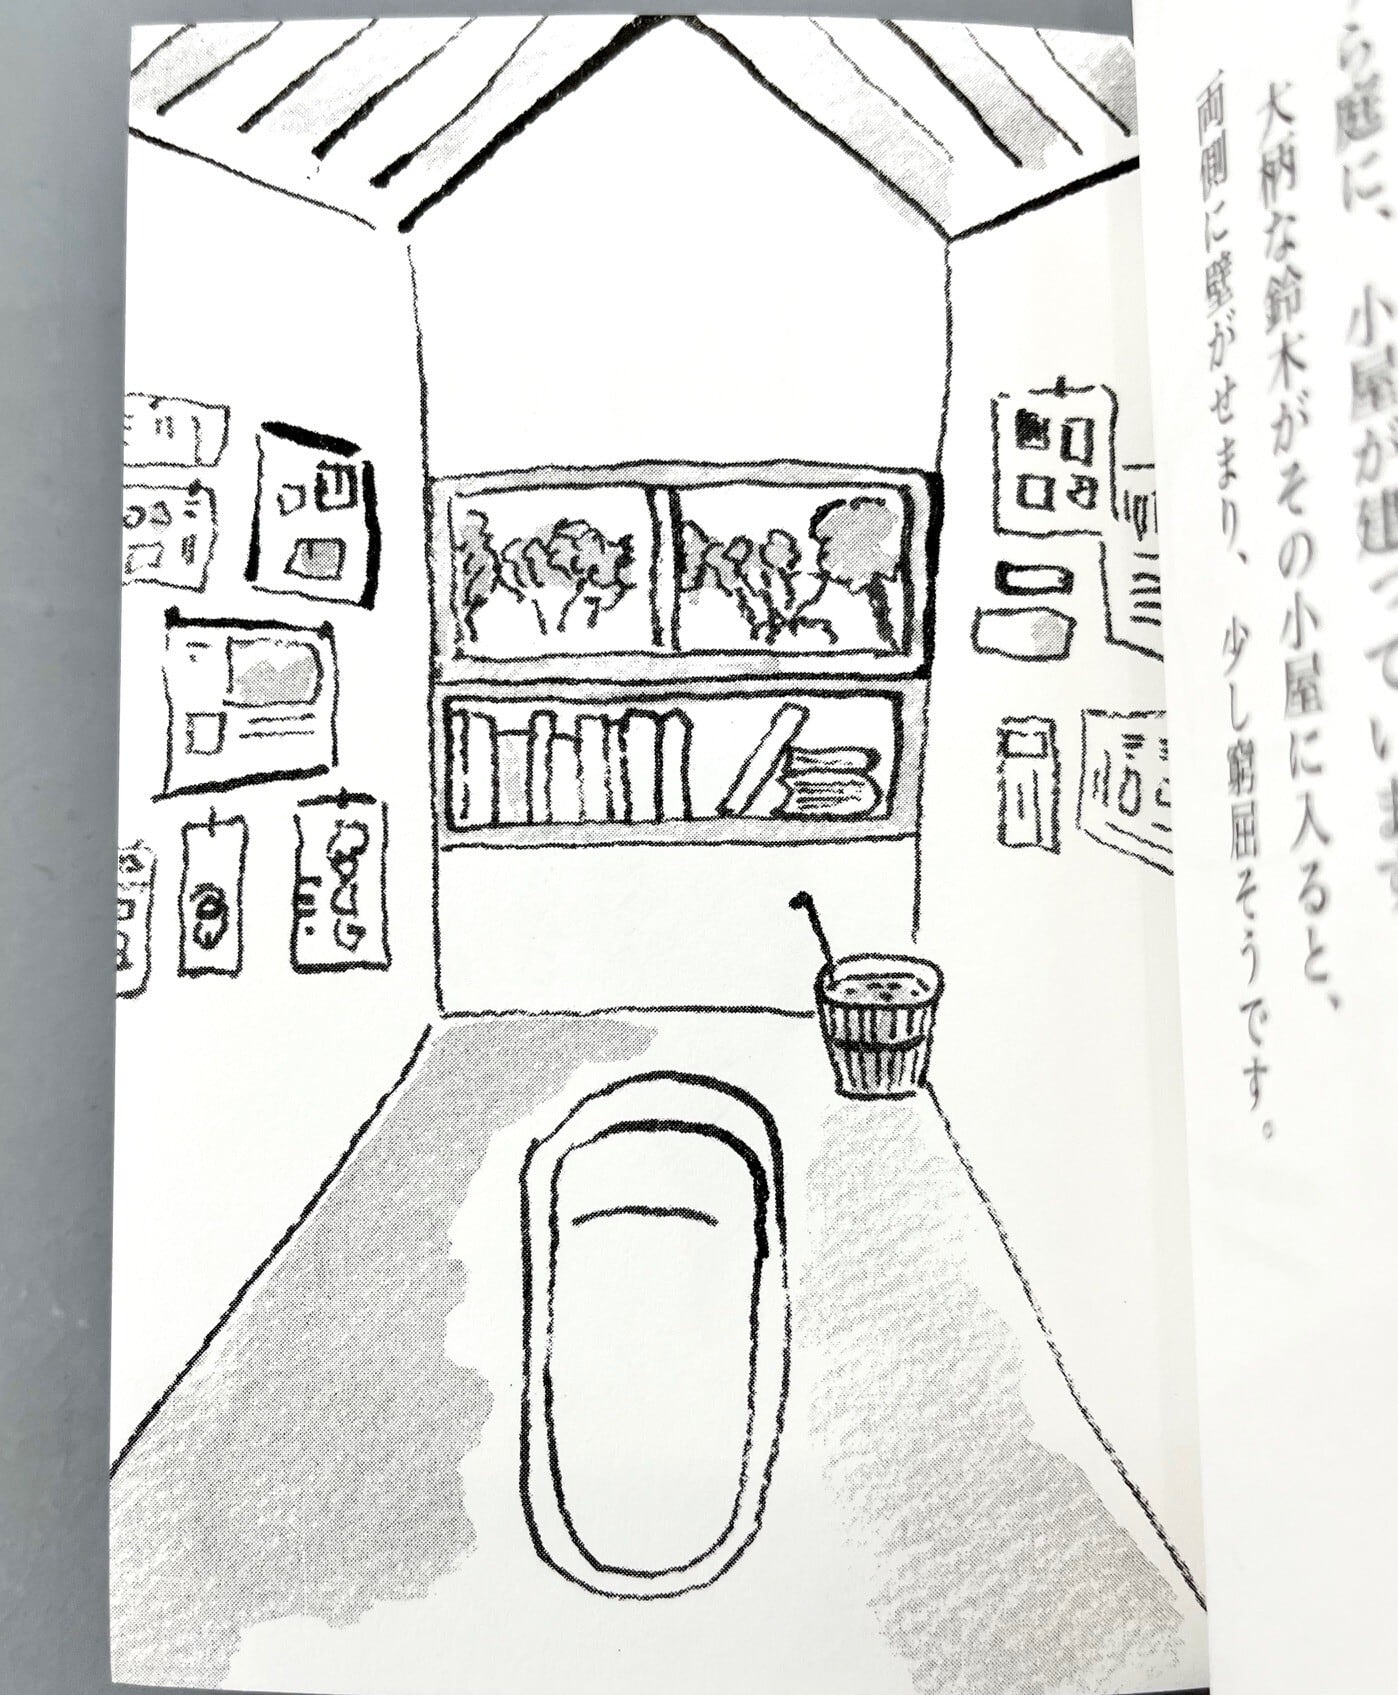 ら庭に、小屋が建っています
大柄な鈴木がその小屋に入ると、
両側に壁がせまり、少し窮屈そうです。